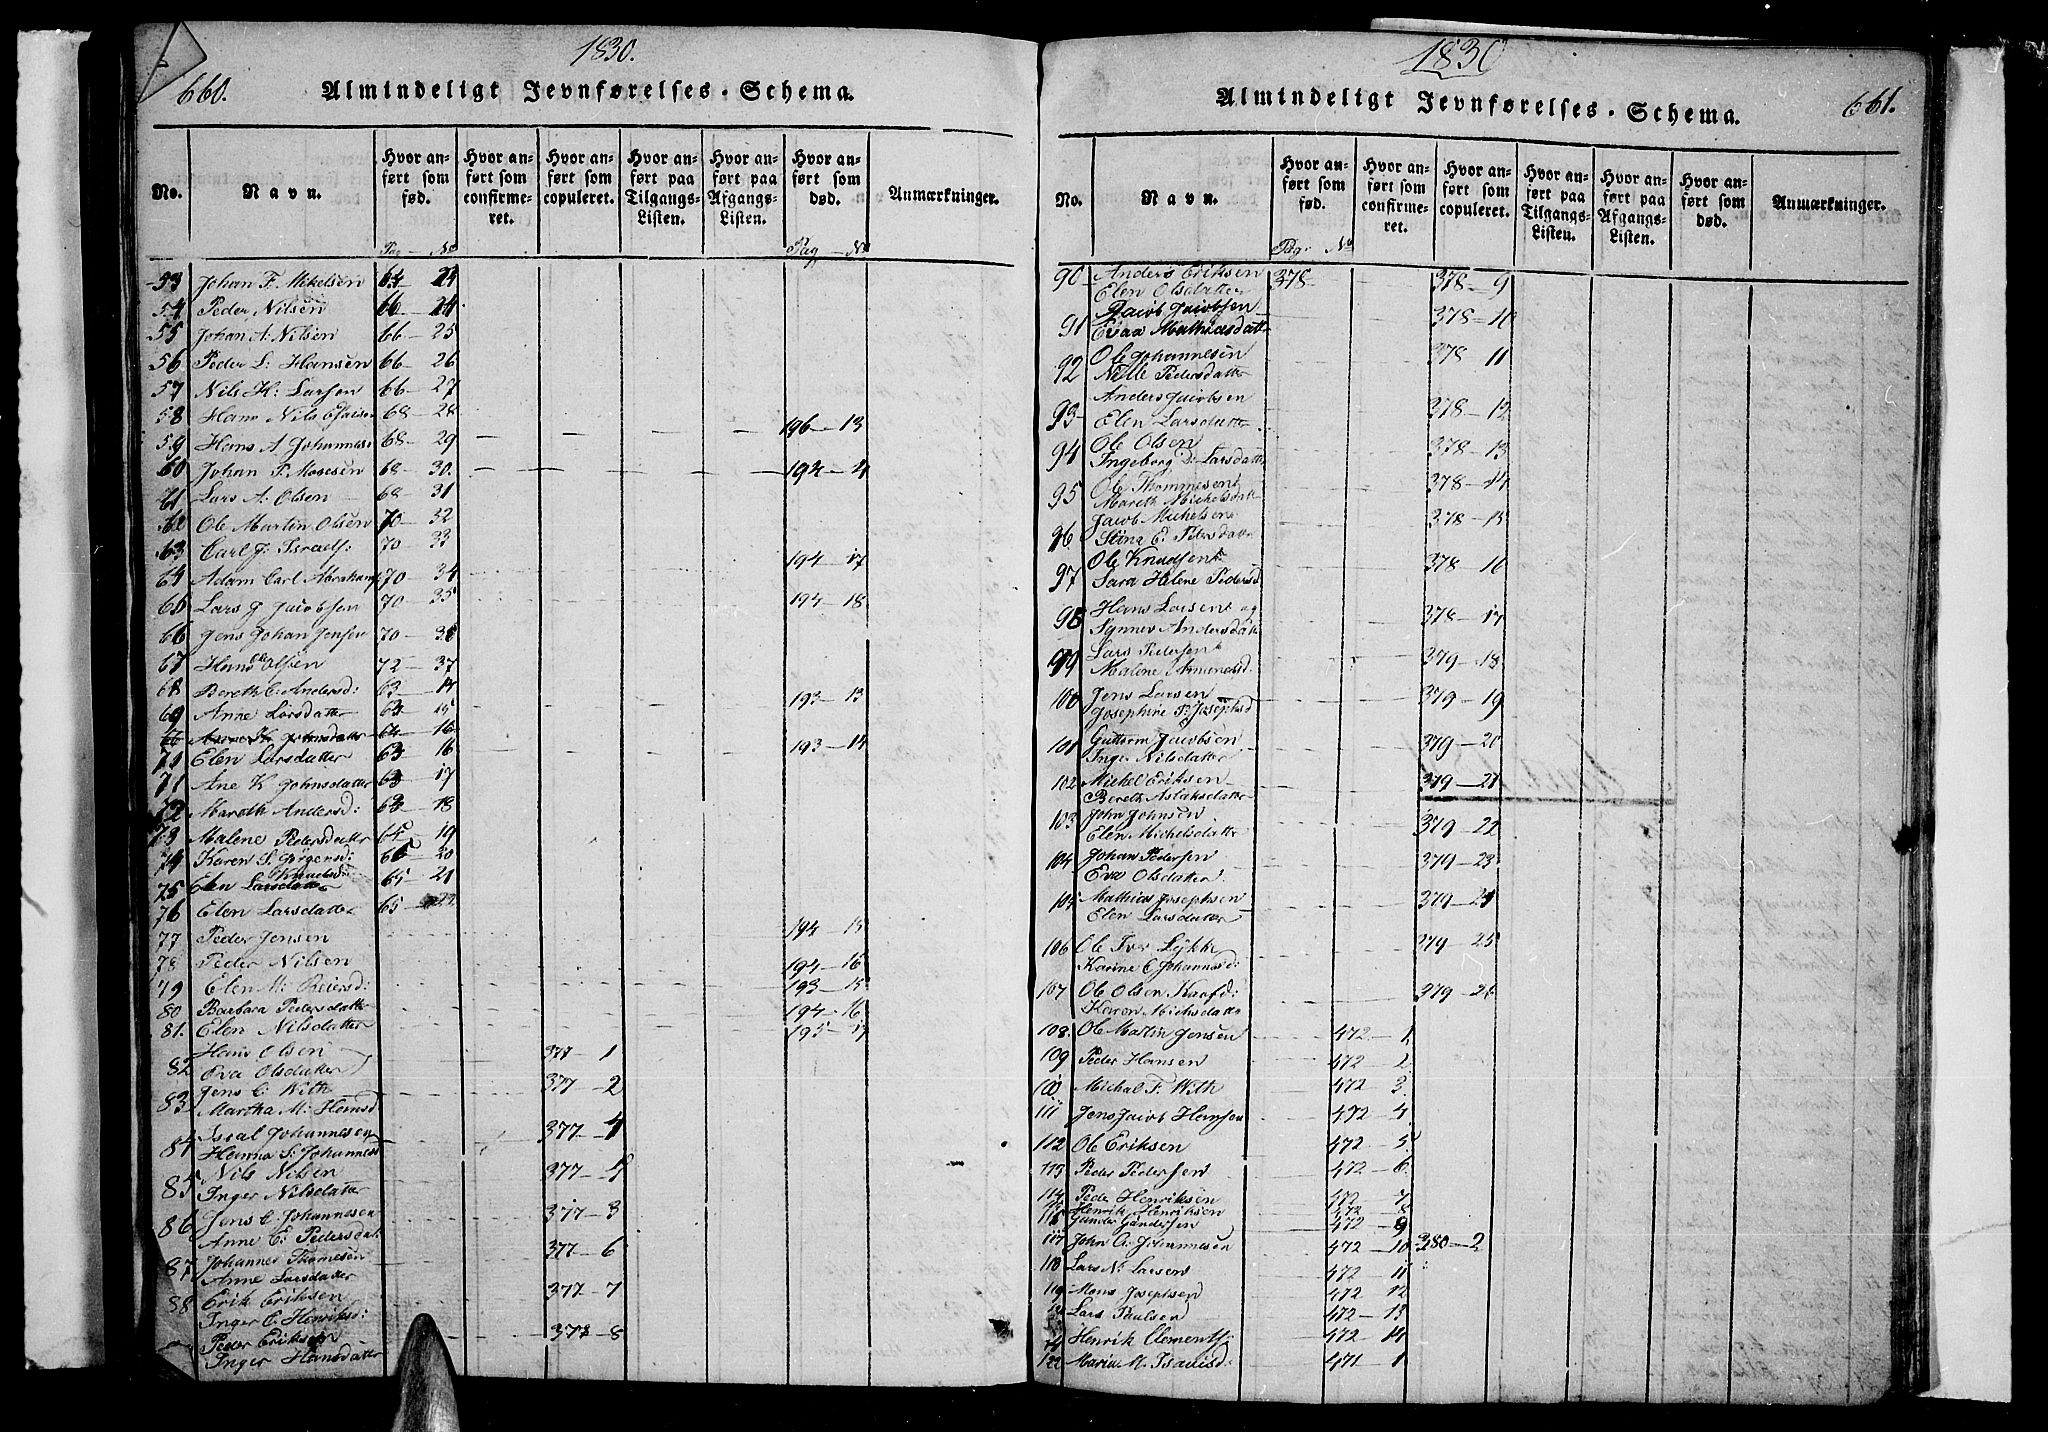 660.
1830.
Almindeligt Jevnførelses-Schema.
No.
Navn.
Hvor anført som fød.
Hvor anført som confirmeret.
Hvor anført som copuleret.
Hvor anført paa Tilgangs-Listen.
Hvor anført paa Afgangs-Listen.
Hvor anført som død.
Anmærkninger.
Pag — No
Pag — No
53 Johan F. Mikelsen 64 —
54 Peder Nilsen 66 — 24
55 Johan A: Nilsen 66 — 25
56 Peder L: Hansen 66 — 26
57 Nils H: Larsen 66 — 27
58 Hans Nils 68 — 28 196 — 13
59 Hans A Johannes 68 — 29
60 Johan P. Mosesen 68 — 30 194 — 4
Lars A. Olsen 68 — 31
62 Ole Martin Olsen 70 — 32
63 Carl J. Israels: 70 — 33 194 — 17
64 Adam Carl Abraham 70 — 34
Lars J Jacobsen 70 — 35 194 — 18
66 Jens Johan Jensen 70 — 36
67 Hans Ole Olsen 72 — 37
68 Bereth C. Andersd: 63 — 14 193 — 13
69 Anne Larsdatter 64 — 15
Anne K Johnsdatter 64 — 16 193 — 14
Elen Larsdatter 63 — 16
71 Ane K Johnsdatter 63 — 17
72 Mareth Andersd: 63 — 18
73 Malene Pedersdatter 64 — 19
74 Karen S. Jørgensd: 65 — 20
75 Elen Larsdatter Knudsd: 65 — 21
76 Elen Larsdatter 65 — 22
77 Peder Jensen 194 — 15
78 Peder Nilsen 194 — 16
79 Elen M: 193 — 15
80 Barbara Pedersdatter 194 — 16
81. Elen Nilsdatter 195 — 17
82 Hans Olsen 377 — 1
Eva Olsdatter
83 Jens C. With 377 — 2
Martha M: Hansd
84 Israel Johannesen 377 — 4
Hanna S: Johannesd
85 Nils Nilsen 377 —
Inger Nilsdatter
86 Jens C. Johannesen 377 — 3
Anne E: Pedersdat.
87 Johannes Thomesen 377 — 6
Anne Larsdatter
88 Erik Eriksen 377 — 7
Inger C. Henriksd:
Peder Eriksen 377 — 8
Inger Hansdatter
1830
Almindeligt Jevnførelses-Schema.
661.
No.
Navn.
Hvor anført som fød.
Hvor anført som confirmeret.
Hvor anført som copuleret.
Hvor anført paa Tilgangs-Listen.
Hvor anført paa Afgangs-Listen.
Hvor anført som død.
Anmærkninger.
Pag. No
90 Anders Eriksen 378 378 — 9
Elen Olsdatter
91 Jacob Jacobsen 378 — 10
Evaa Mathiasdatt
92 Ole Johannesen 378 11
Nille Pedersdatter
93 Anders Jacobsen 378 — 12
Elen Larsdatter
94 Ole Olsen 378 — 13
Ingeborg D: Larsdatter
95 Ole Thommesen 378 — 14
Mareth Michelsdatt
96 Jacob Michelsen 378 — 15
Stina E. Pedersdatter
97 Ole Knudsen 378 — 16
Sara Helene Pedersd
98 Hans Larsen og 378 — 17
Synnev Andersdatt
99 Lars Pedersen 379 — 18
Malene Amundsd.
100 Jens Larsen 379 — 19
Josephine P. Josephsd
101 Guttorm Jacobsen 379 — 20
Inger Nilsdatter
102 Mickel Eriksen 379 — 21
Bereth Aslaksdatter
103 John Johnsen 379 — 22
Elen Michelsdatter
104 Johan Pedersen 379 — 23
Eva Olsdatter.
105 Mathias Josephsen 379 — 24
Elen Larsdatter
106 Ole Iver Lykke 379 — 25
Karine C Johannesd:
107 Ole Olsen 379 — 26
Karen Michelsdatter
108. Ole Martin Jensen 472 — 1
109 Peder Hansen 472 — 2
Michal F. With 472 — 3
111 Jens Jacob Hansen 472 — 4
112 Ole Eriksen 472 — 5
113 Peder Pedersen 472 — 6
114 Peder Henriksen 472 — 7
115 Henrik Henriksen 472 — 8
116 Gunder Gundersen 472 — 9
117 John O. Johannesen 472 — 10 380 — 2
118 Lars N. Larsen 472 — 11
119 Mons Josephsen 472 — 12
Lars Paulsen 472 — 13
Henrik Clements: 472 — 14
122 Maria M. 471 — 1